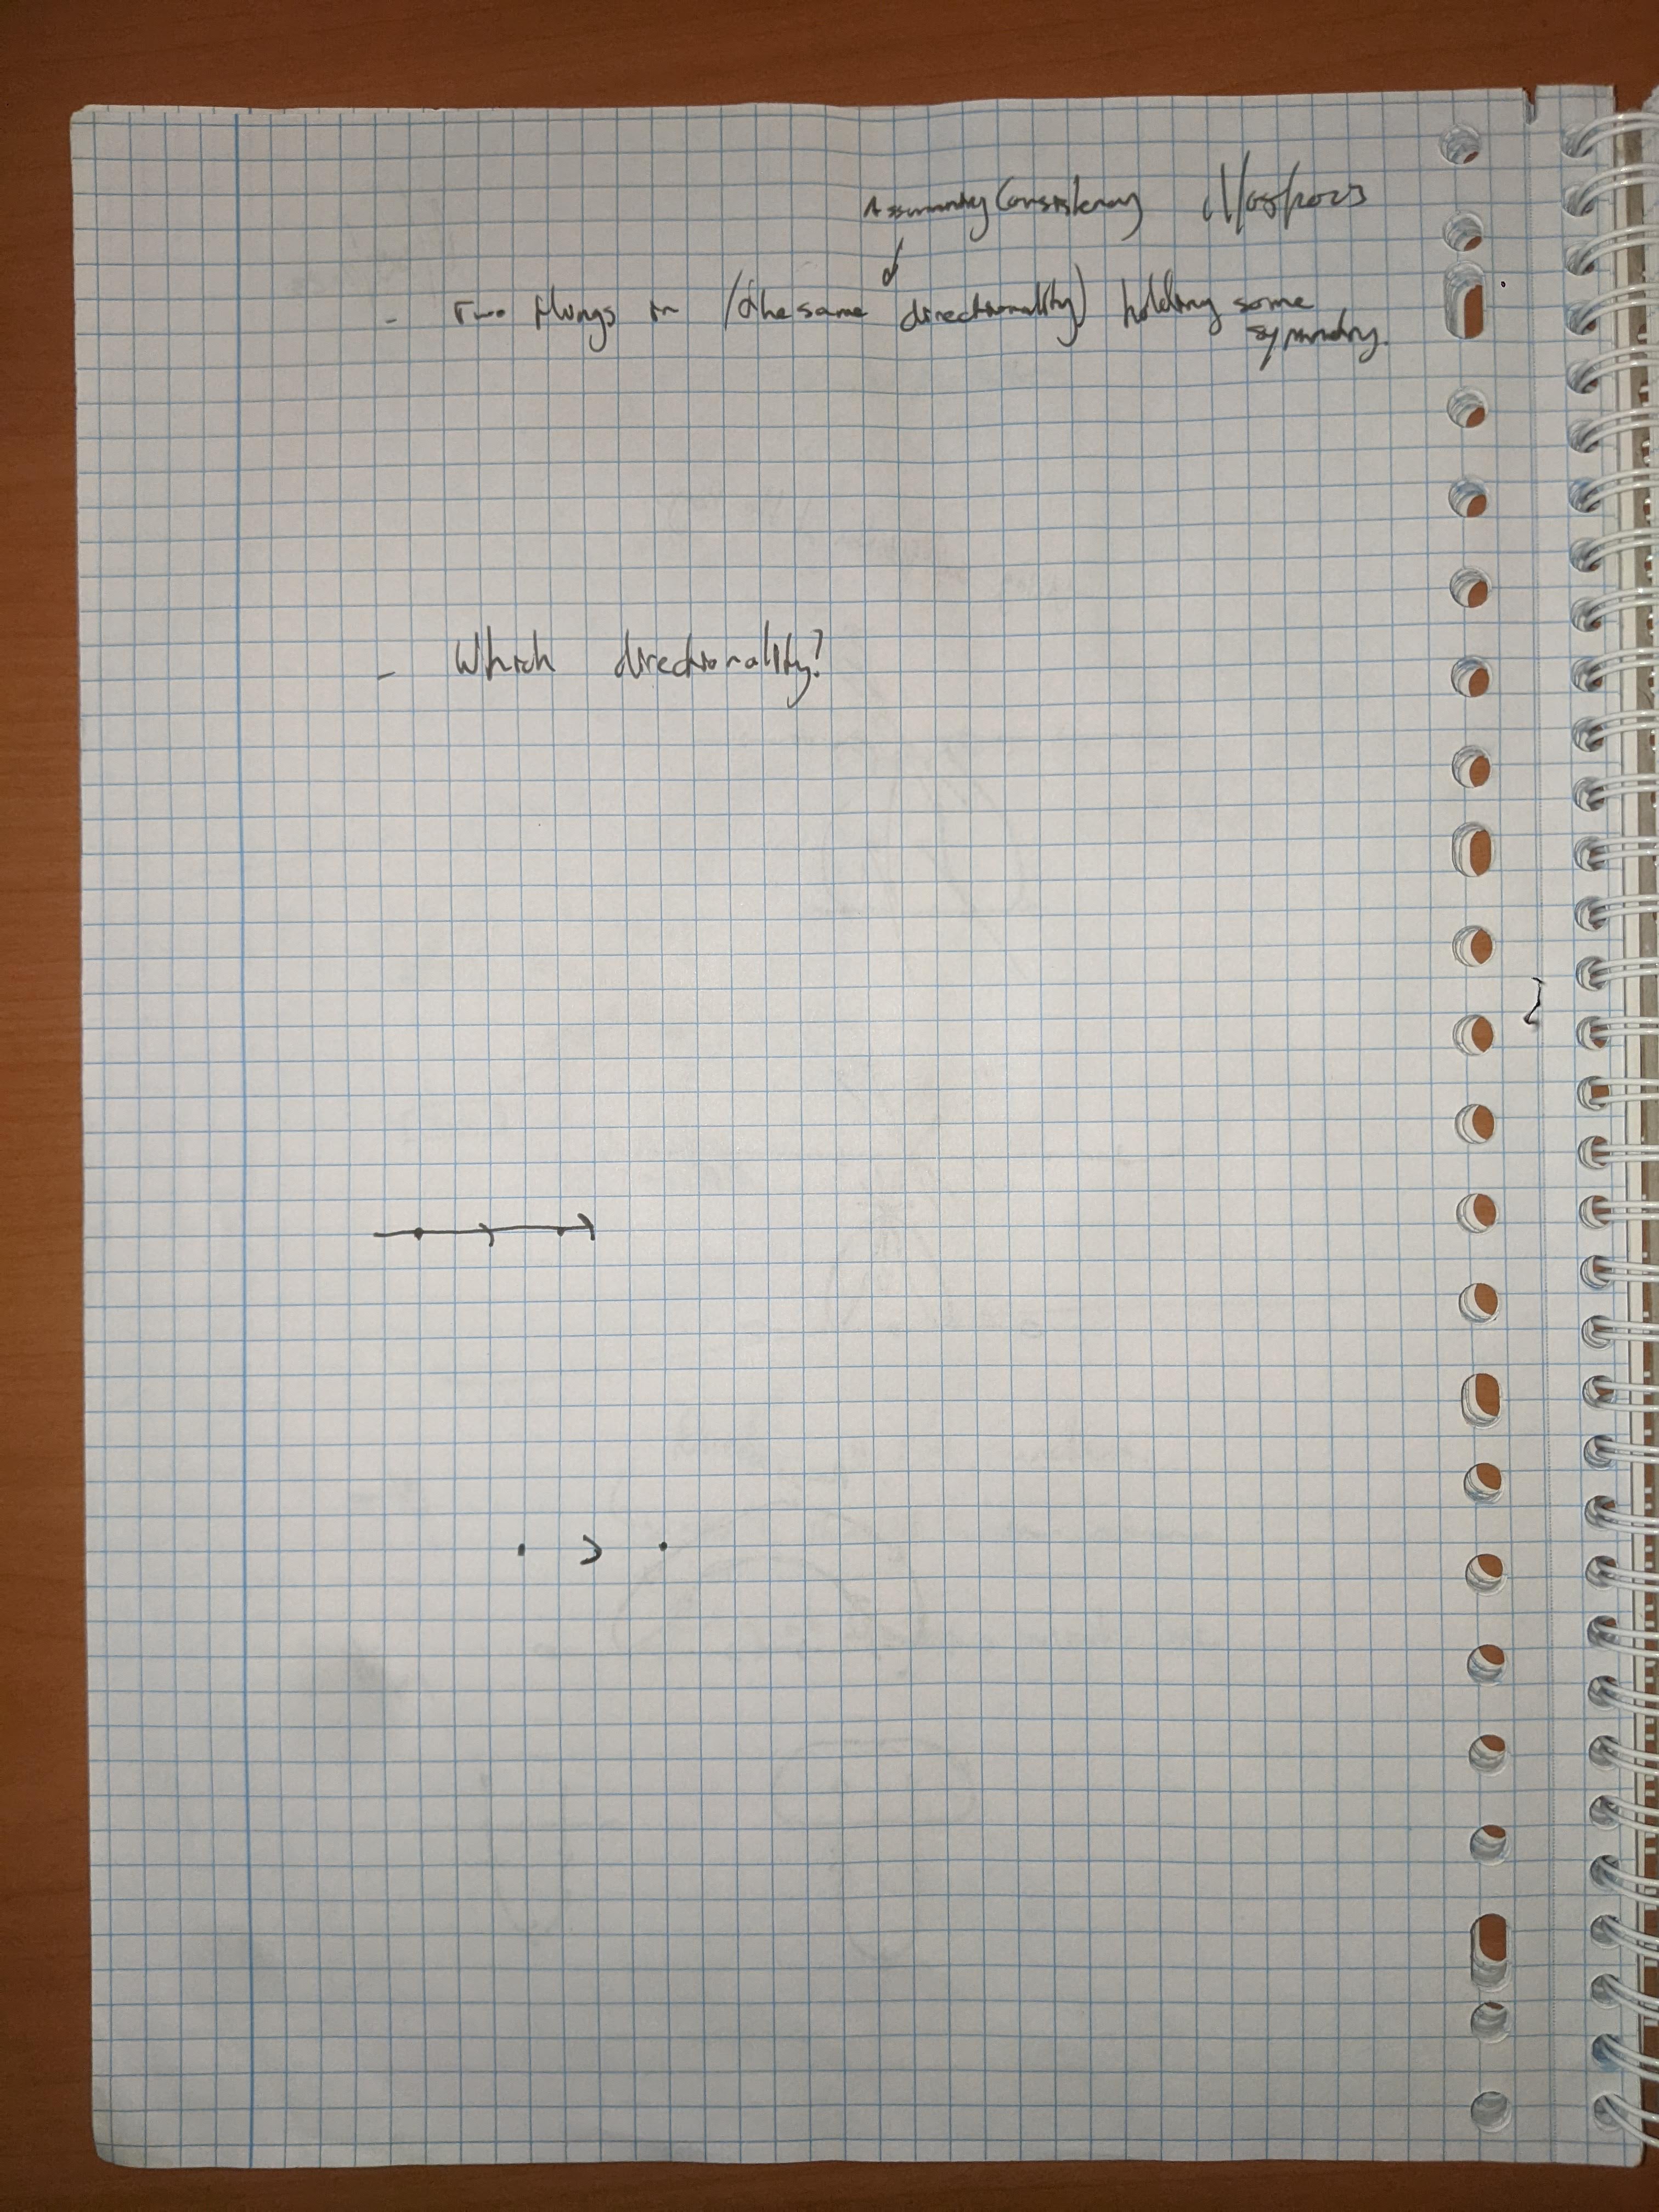 Assuming Consistency 11/08/2023
- Two things in (the same directionality) holding some
symmetry.
- Which directionality?